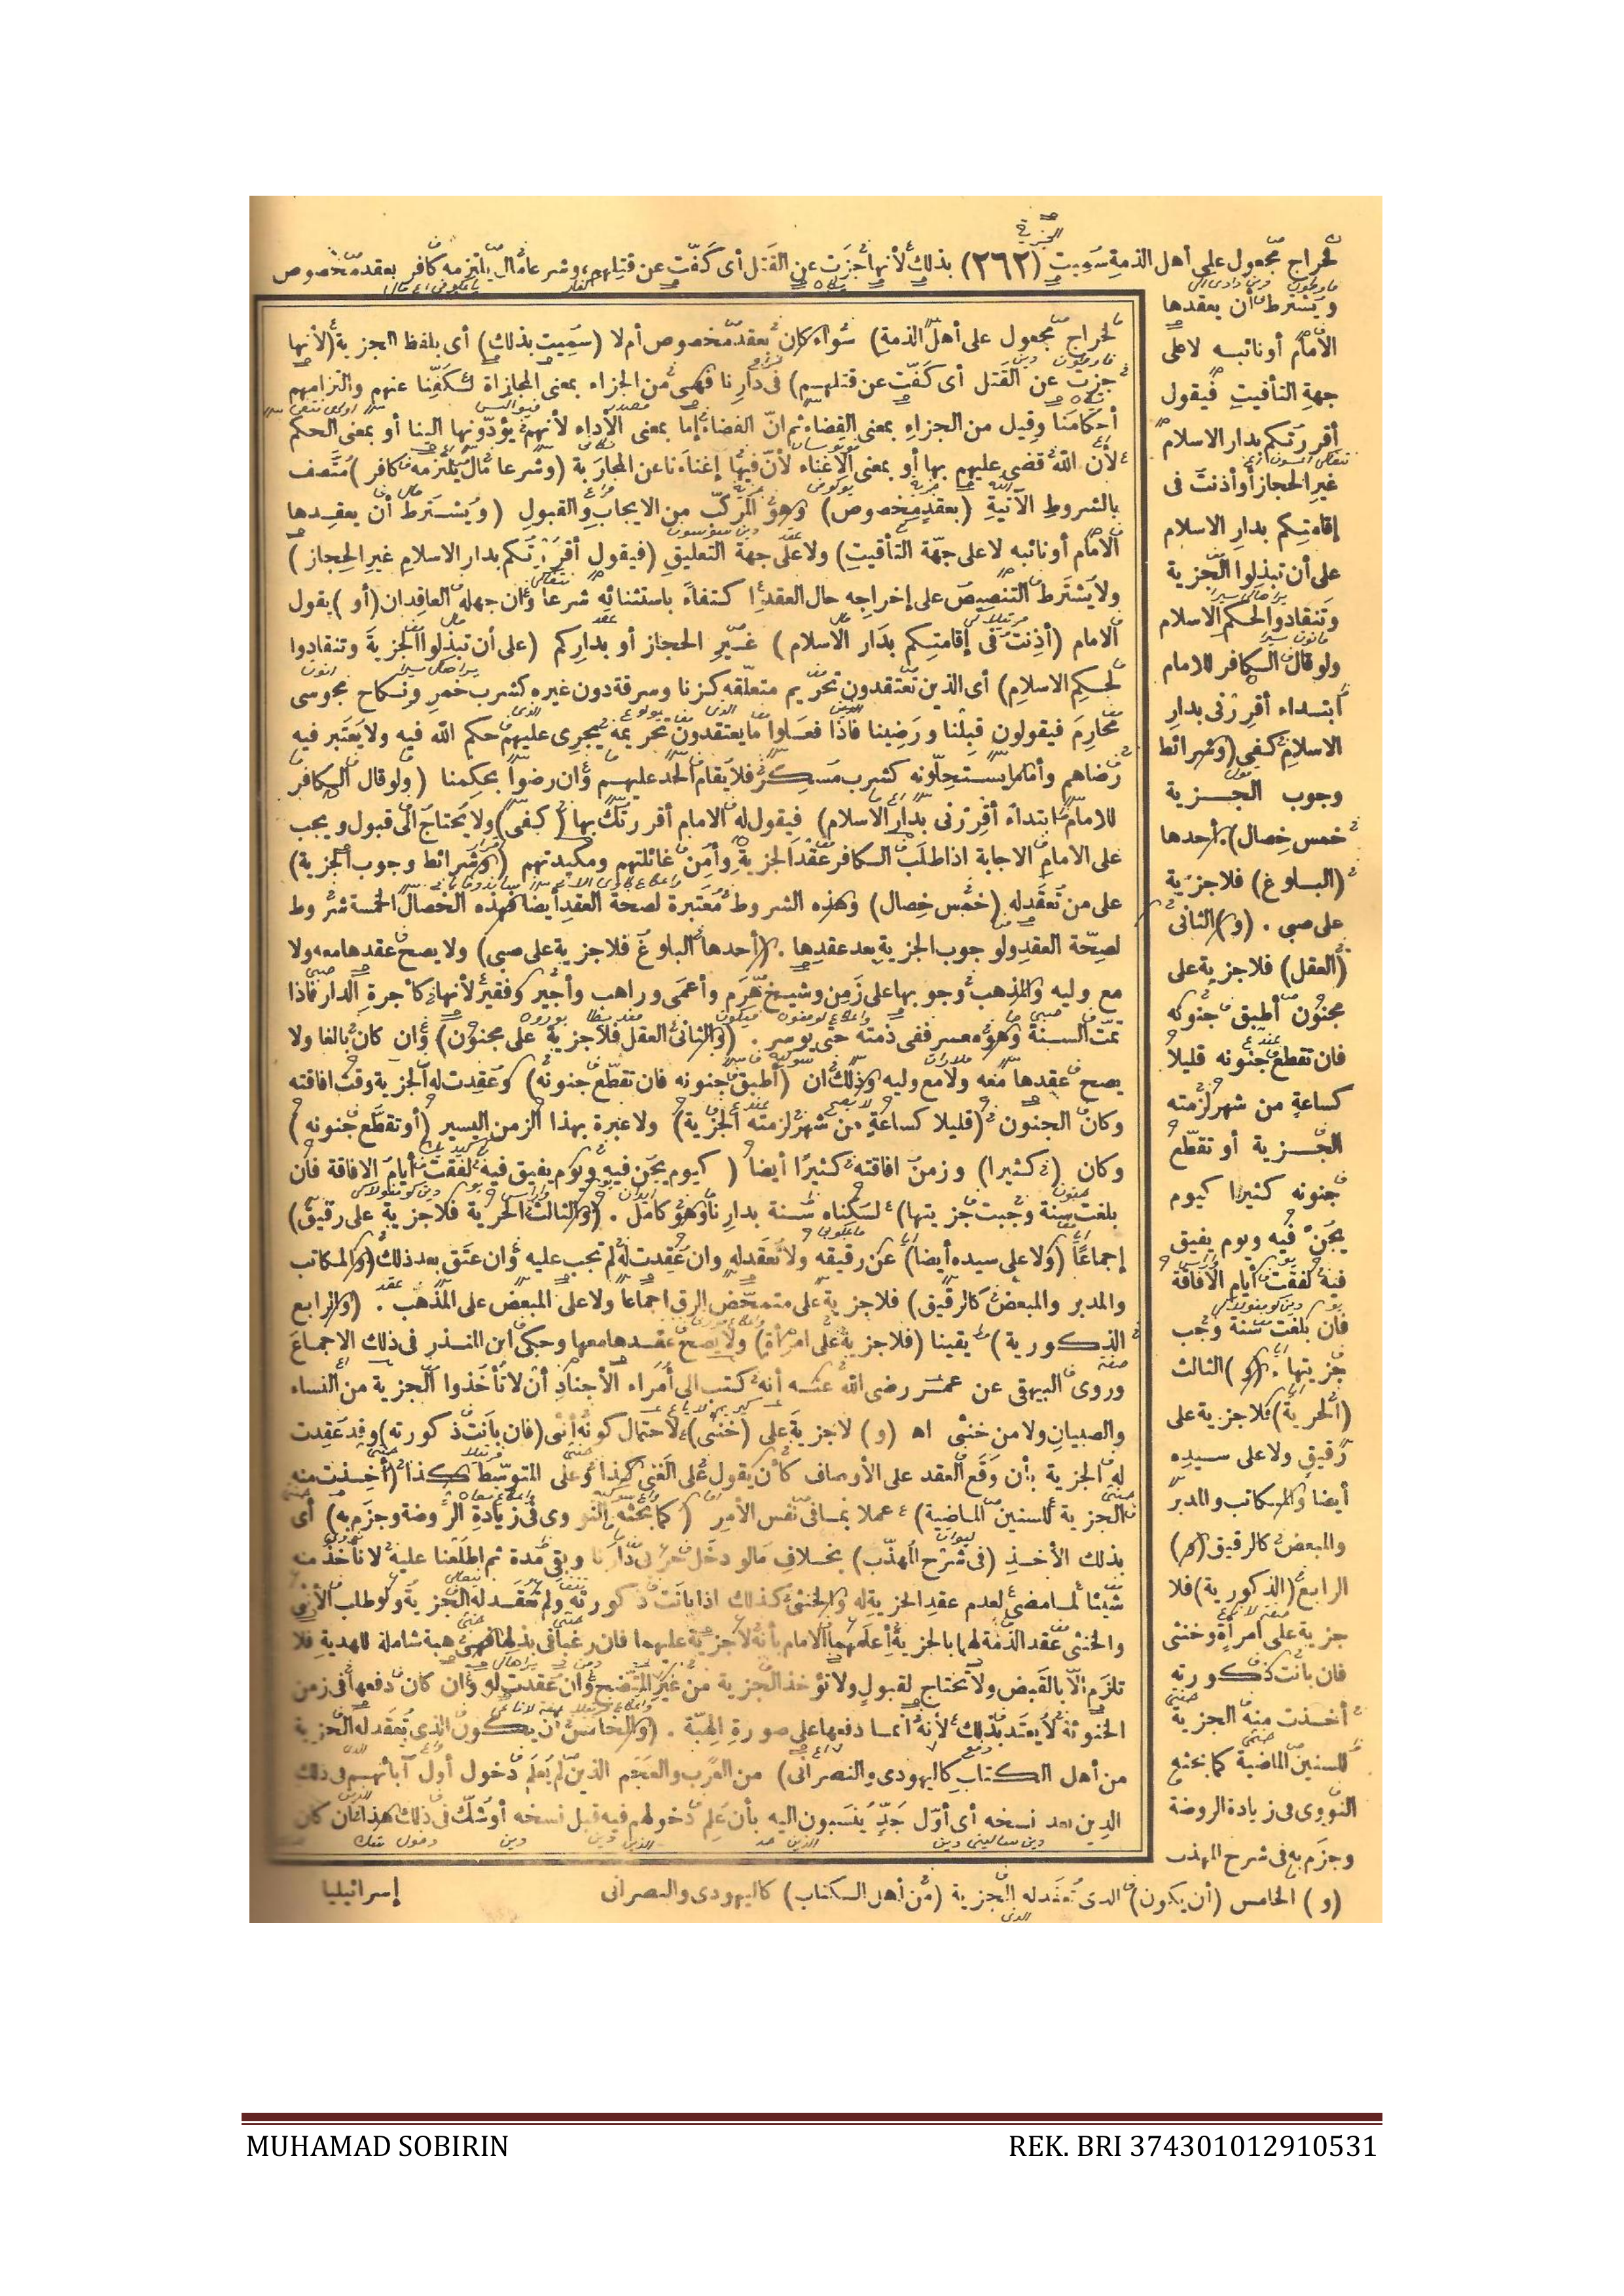 لخراج مجعول على أهل الذمة سميت (٢٦٢) بذلك لأنها جزت عن القتل أى كفت عن قتلهم وشرعا مال يلتزمه كافر بعقد مخصوص
ويشترط أن يعقدها
الامام أونائبه لاعلى
جهة التأقيت فيقول
أقررتكم بدار الاسلام
غير الحجاز أو أذنت فى
إقامتكم بدار الاسلام
على أن تبذلوا الجزية
وتنقادوا لحكم الاسلام
ولو قال الكافر للامام
ابتداء أقررنى بدار
الاسلام كفى (وشرائط
وجوب الجزية
خمس خصال) أحدها
(البلوغ) فلاجزية
على صبى . (و) الثانى
(العقل) فلاجزية على
مجنون أطبق جنونه
فان تقطع جنونه قليلا
كساعة من شهر لزمته
الجزية أو تقطع
جنونه كثيرا كيوم
يجن فيه ويوم يفيق
فيه لفقت أيام الافاقة
فان بلغت سنة وجب
جزيتها . (و) الثالث
(الحرية) فلاجزية على
رقيق ولا على سيده
أيضا والمكاتب والمدبر
والمبعض كالرقيق (و)
الرابع (الذكورية) فلا
جزية على امرأة وخنثى
فان بانت ذكورته
أخذت منه الجزية
للسنين الماضية كما بحثه
النووى فى زيادة الروضة
وجزم به فى شرح المهذب
لخراج مجعول على أهل الذمة) سواء كان بعقد مخصوص أم لا (سميت بذلك) أى بلفظ الجزية (لأنها
جزت عن القتل أى كفت عن قتلهم) فى دارنا فهى من الجزاء بمعنى المجازاة لكفنا عنهم والتزامهم
أحكامنا وقيل من الجزاء بمعنى القضاء ثم ان القضاء إما بمعنى الأداء لأنهم يؤدونها الينا أو بمعنى الحكم
لأن الله قضى عليهم بها أو بمعنى الاغناء لأن فيها إغناءنا عن المحاربة (وشرعا مال يلتزمه كافر) متصف
بالشروط الآتية (بعقد مخصوص) وهو المركب من الايجاب والقبول (ويشترط أن يعقدها
الامام أونائبه لا على جهة التأقيت) ولا على جهة التعليق (فيقول أقررتكم بدار الاسلام غير الحجاز)
ولايشترط التنصيص على إخراجه حال العقد اكتفاء باستثنائه شرعا وان جهله العاقدان (أو) يقول
الامام (أذنت فى إقامتكم بدار الاسلام) غير الحجاز أو بداركم (على أن تبذلوا الجزية وتنقادوا
لحكم الاسلام) أى الذين تعتقدون تحريم متعلقه كزنا وسرقة دون غيره كشرب خمر ونكاح مجوسى
محارم فيقولون قبلنا ورضينا فاذا فعلوا ما يعتقدون تحريمه يجرى عليهم حكم الله فيه ولا يعتبر فيه
رضاهم وأما ما يستحلونه كشرب مسكر فلا يقام الحد عليهم وان رضوا بحكمنا (ولو قال الكافر
للامام ابتداء أقررنى بدار الاسلام) فيقول له الامام أقررتك بها (كفى) ولا يحتاج الى قبول ويجب
على الامام الاجابة اذا طلب الكافر عقد الجزية وأمن غائلتهم ومكيدتهم (وشرائط وجوب الجزية)
على من تعقد له (خمس خصال) وهذه الشروط معتبرة لصحة العقد أيضا فهذه الخصال الخمسة شروط
لصحة العقد ولوجوب الجزية بعد عقدها . (أحدها البلوغ فلاجزية على صبى) ولا يصح عقدها معه ولا
مع وليه والمذهب وجوبها على زمن وشيخ هرم وأعمى وراهب وأجير وفقير لأنها كأجرة الدار فاذا
تمت السنة وهو معسر ففى ذمته حتى يوسر . (والثانى العقل فلاجزية على مجنون) وان كان بالغا ولا
يصح عقدها معه ولا مع وليه وذلك ان (أطبق جنونه فان تقطع جنونه) وعقدت له الجزية وقت افاقته
وكان الجنون (قليلا كساعة من شهر لزمته الجزية) ولا عبرة بهذا الزمن اليسير (أو تقطع جنونه)
وكان (كثيرا) وزمن افاقته كثيرا أيضا (كيوم يجن فيه ويوم يفيق فيه لفقت أيام الافاقة فان
بلغت سنة وجبت جزيتها) لسكناه سنة بدارنا وهو كامل . (والثالث الحرية فلاجزية على رقيق)
إجماعا (ولا على سيده أيضا) عن رقيقه ولا تعقد له وان عقدت له لم تجب عليه وان عتق بعد ذلك (والمكاتب
والمدبر والمبعض كالرقيق) فلاجزية على متمحض الرق اجماعا ولا على المبعض على المذهب . (والرابع
الذكورية) يقينا (فلاجزية على امرأة) ولا يصح عقدها معها وحكى ابن المنذر فى ذلك الاجماع
وروى البيهقى عن عمر رضى الله عنه أنه كتب الى أمراء الأجناد أن لا تأخذوا الجزية من النساء
والصبيان ولا من خنثى اه (و) لاجزية على (خنثى) لاحتمال كونه أنثى (فان بانت ذكورته) وقد عقدت
له الجزية بأن وقع العقد على الأوصاف كأن يقول على الغنى كذا وعلى المتوسط كذا (أخذت منه
الجزية للسنين الماضية) عملا بما فى نفس الأمر (كما بحثه النووى فى زيادة الروضة وجزم به) أى
بذلك الأخذ (فى شرح المهذب) بخلاف مالو دخل حربى دارنا وبقى مدة ثم اطلعنا عليه لا نأخذ منه
شيئا لما مضى لعدم عقد الجزية له والخنثى كذلك اذا بانت ذكورته ولم تعقد له الجزية ولو طلب الأنثى
والخنثى عقد الذمة لهما بالجزية أعلمهما الامام بأنه لاجزية عليهما فان رغبا فى بذلها فهى هبة شاملة للهدية فلا
تلزم الا بالقبض ولا تحتاج لقبول ولا تؤخذ الجزية من غير المتضح وان عقدت له وان كان دفعها فى زمن
الخنوثة لا يعتد بذلك لأنه انما دفعها على صورة الهبة . (والخامس أن يكون الذى تعقد له الجزية
من أهل الكتاب كاليهودى والنصرانى) من العرب والعجم الذين لم يعلم دخول أول آبائهم فى ذلك
الدين بعد نسخه أى أول جد ينسبون اليه بأن علم دخولهم فيه قبل نسخه أو شك فى ذلك هذا ان كان
(و) الخامس (أن يكون) الذى تعقد له الجزية (من أهل الكتاب) كاليهودى والنصرانى
إسرائيليا
MUHAMAD SOBIRIN
REK. BRI 374301012910531